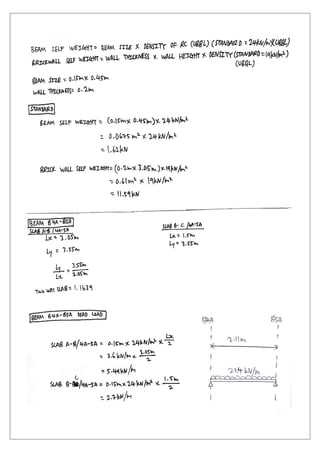 BEAM SELF WEIGHT= BEAM SIZE X DENSITY OF RC (UBBL) (STANDARD = 24kN/m³)(UBBL)
BRICKWALL SELF WEIGHT= WALL THICKNESS X WALL HEIGHT X DENSITY (STANDARD = 19kN/m³)
(UBBL)
BEAM SIZE = 0.15m X 0.45m
WALL THICKNESS: 0.2m
STANDARD
BEAM SELF WEIGHT = (0.15m X 0.45m) X 24 kN/m³
= 0.0675 m² X 24kN/m³
= 1.62kN
BRICK WALL SELF WEIGHT= (0.2m X 3.05m) X 19kN/m³
= 0.61m² X 19kN/m³
= 11.59kN
BEAM B4A-B5A
SLAB A-B /4A-5A
Lx = 3.05m
Ly = 3.55m
Ly/Lx = 3.55m/3.05m
TWO WAY SLAB = 1.1639
SLAB B-C /4A-5A
Lx = 1.5m
Ly = 3.55m
BEAM B4A-B5A DEAD LOAD
SLAB A-B/4A-5A = 0.15m X 24kN/m³ X Lx/2
= 3.6kN/m X 3.05m/2
= 5.49kN/m
SLAB B-C/4A-5A = 0.15m X 24kN/m³ X 1.5m/2
= 2.7kN/m
B4A B5A